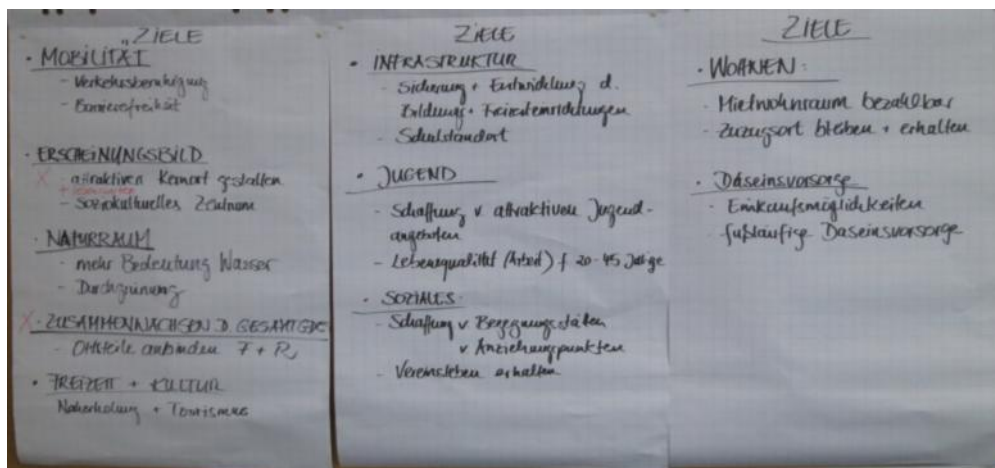 „ZIELE
• MOBILITÄT
- Verkehrsberuhigung
- Barrierefreiheit
• ERSCHEINUNGSBILD
X - attraktiven Kernort gestalten
+ lebenswerten
- Soziokulturelles Zentrum
• NATURRAUM
- mehr Bedeutung Wasser
- Durchgrünung
X • ZUSAMMENWACHSEN D. GESAMTGDE
- Ortsteile anbinden F + R
• FREIZEIT + KULTUR
Naherholung + Tourismus
ZIELE
• INFRASTRUKTUR
- Sicherung + Entwicklung d.
Bildungs + Freizeiteinrichtungen
- Schulstandort
• JUGEND
- Schaffung v attraktiven Jugend-
angeboten
- Lebensqualität (Arbeit) f 20-45 Jährige
• SOZIALES
- Schaffung v Begegnungsstätten
v Anziehungspunkten
- Vereinsleben erhalten
ZIELE
• WOHNEN:
- Mietwohnraum bezahlbar
- Zuzugsort bleiben + erhalten
• Daseinsvorsorge
- Einkaufsmöglichkeiten
- fußläufige Daseinsvorsorge